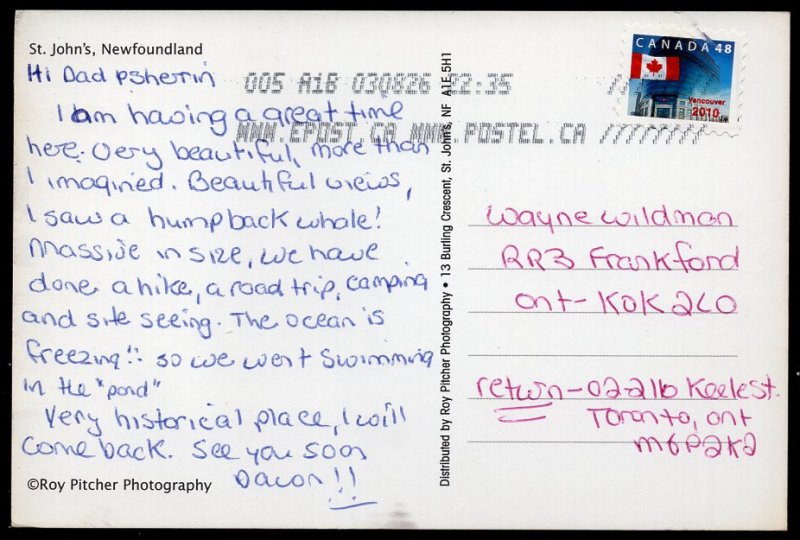 St. John's, Newfoundland
Hi Dad
I am having a great time
here. Very beautiful, more than
I imagined. Beautiful views,
I saw a humpback whale!
Massive in size, we have
done a hike, a road trip, camping
and site seeing. The ocean is
freezing!! so we went swimming
in the "pond"
Very historical place, I will
come back. See you soon
!!
©Roy Pitcher Photography
Distributed by Roy Pitcher Photography • 13 Burling Crescent, St. John's, NF A1E 5H1
005 A18 030826 22:35
WWW.EPOST.CA WWW.POSTEL.CA
CANADA 48
Vancouver
2010
Wayne Wildman
RR3 Frankford
Ont - K0K 2C0
return - 02-216 Keele st.
Toronto, ont
M6P2K2